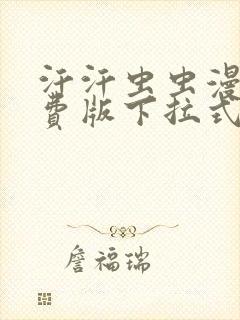 汗汗虫虫漫
费版下拉式
詹福瑞